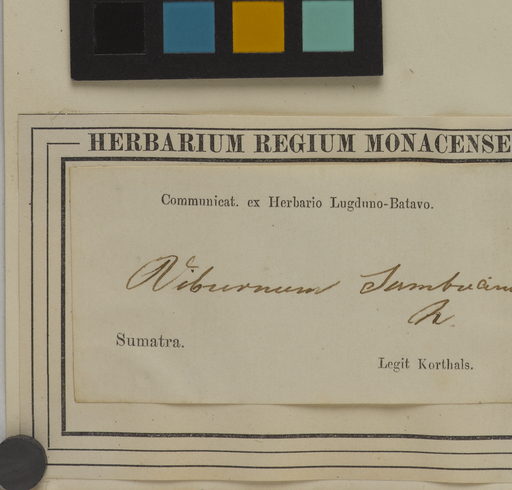 HERBARIUM REGIUM MONACENSE
Communicat. ex Herbario Lugduno-Batavo.
Viburnum
Sumatra.
Legit Korthals.